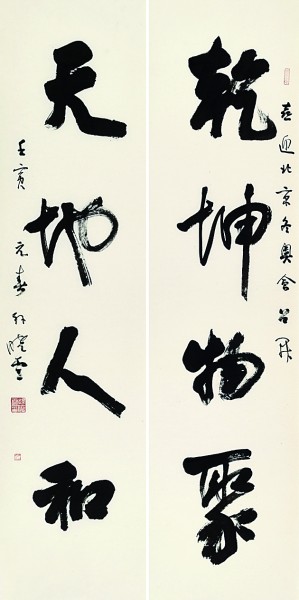 喜迎北京冬奥会召开
乾坤物聚
天地人和
壬寅元春